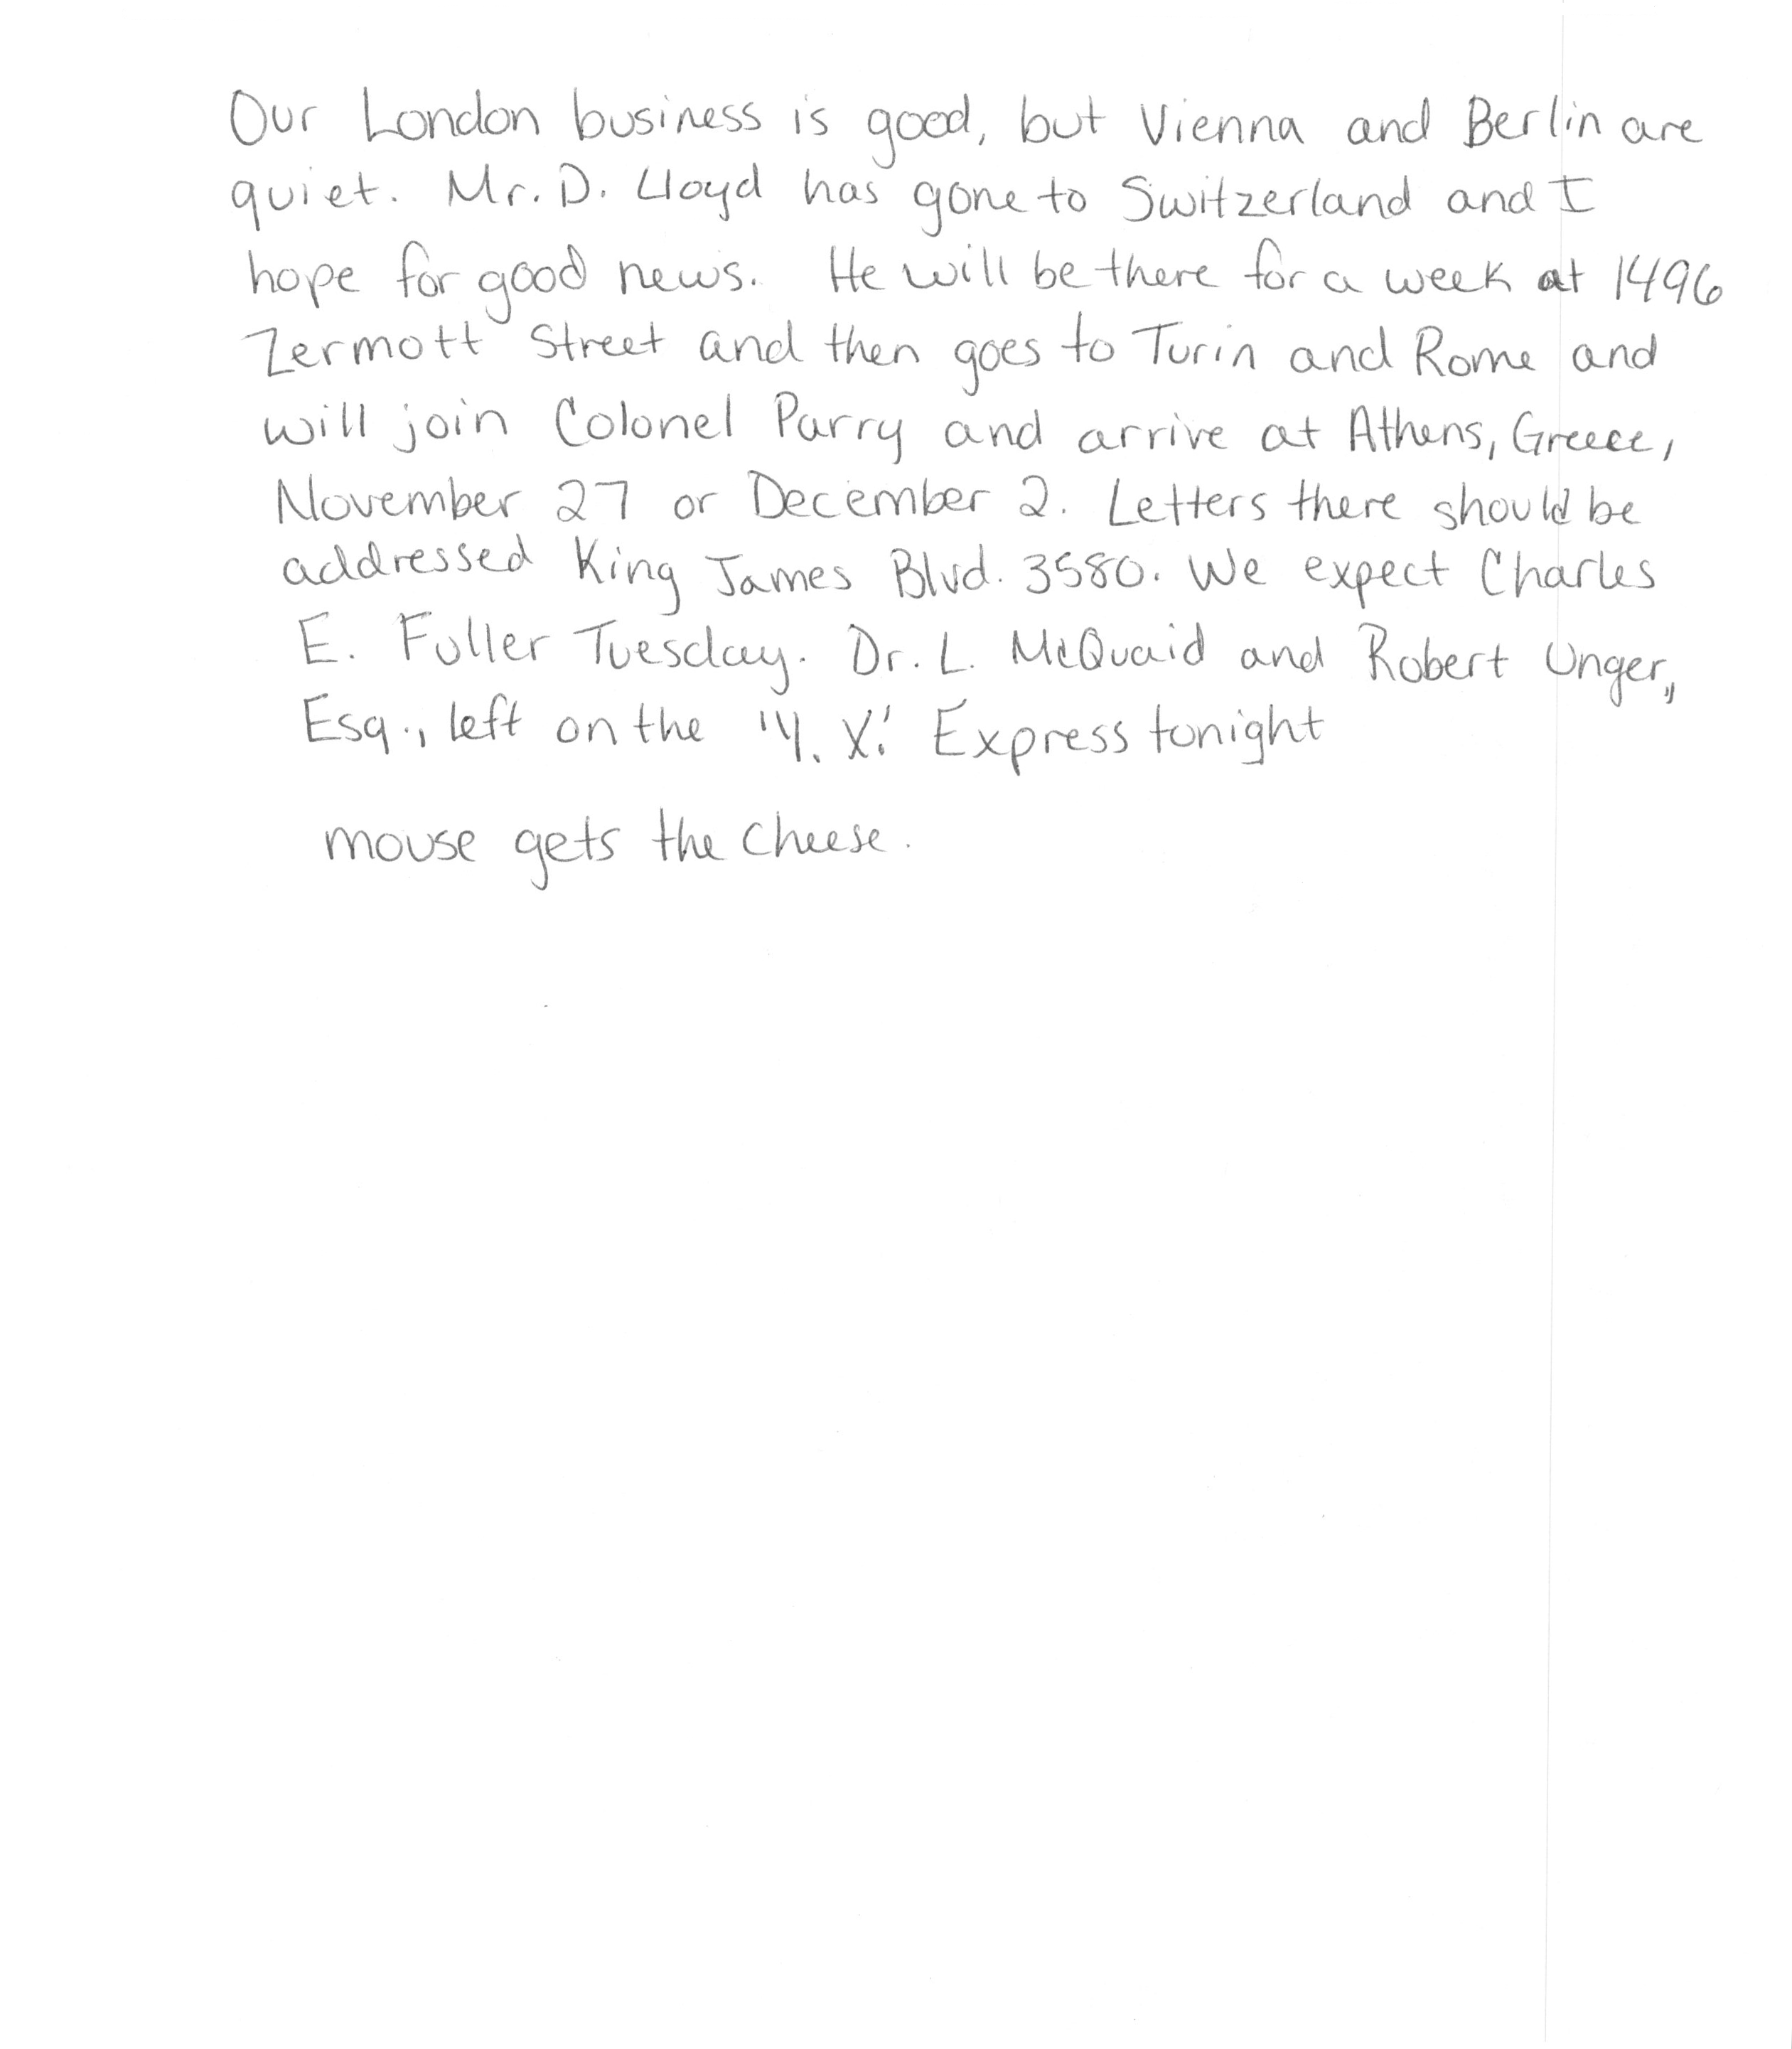 Our London business is good, but Vienna and Berlin are
quiet. Mr. D. Lloyd has gone to Switzerland and I
hope for good news. He will be there for a week at 1496
Zermott Street and then goes to Turin and Rome and
will join Colonel Parry and arrive at Athens, Greece,
November 27 or December 2. Letters there should be
addressed King James Blvd. 3580. We expect Charles
E. Fuller Tuesday. Dr. L. McQuaid and Robert Unger,,
Esq., left on the "Y. X." Express tonight
mouse gets the cheese.